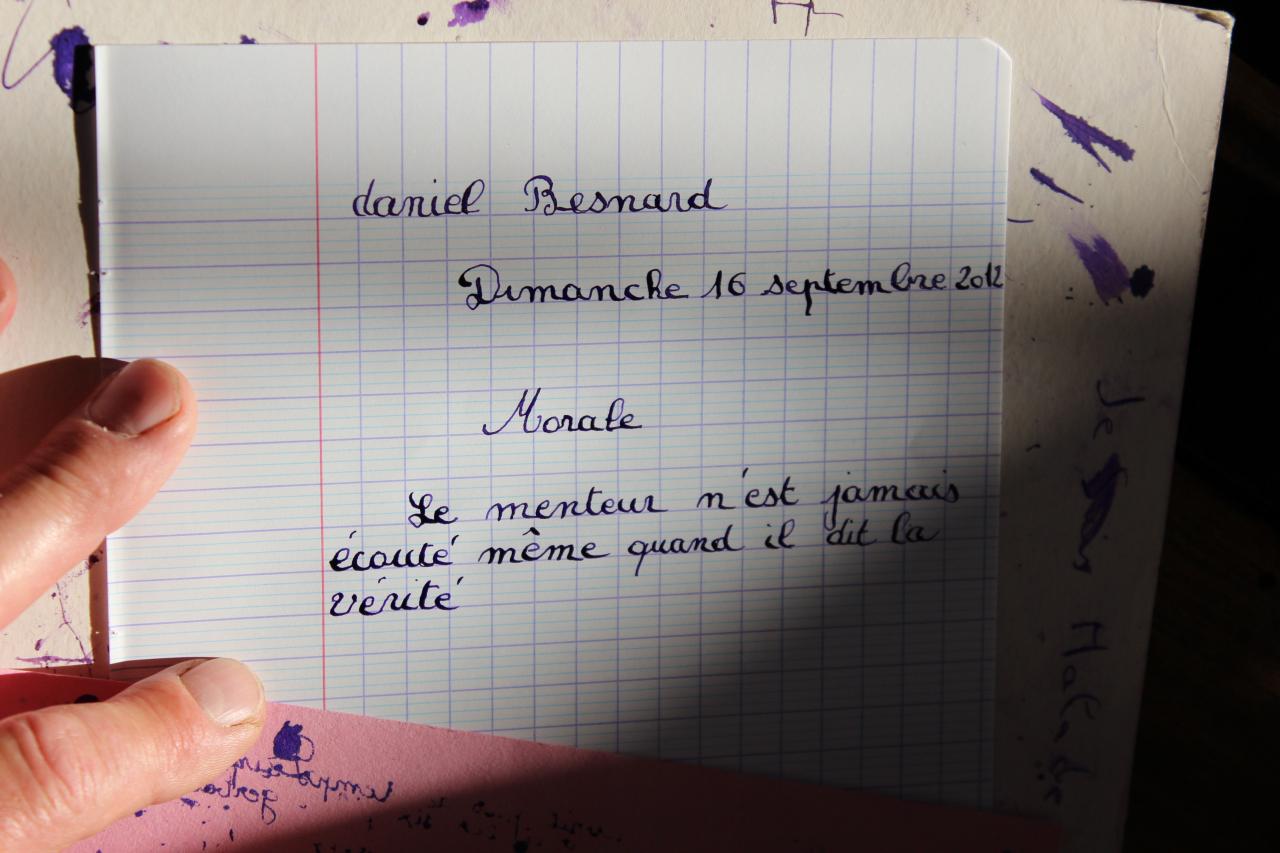 daniel Besnard
Dimanche 16 septembre 2012
Morale
Le menteur n'est jamais
écouté même quand il dit la
vérité
Je suis Malade